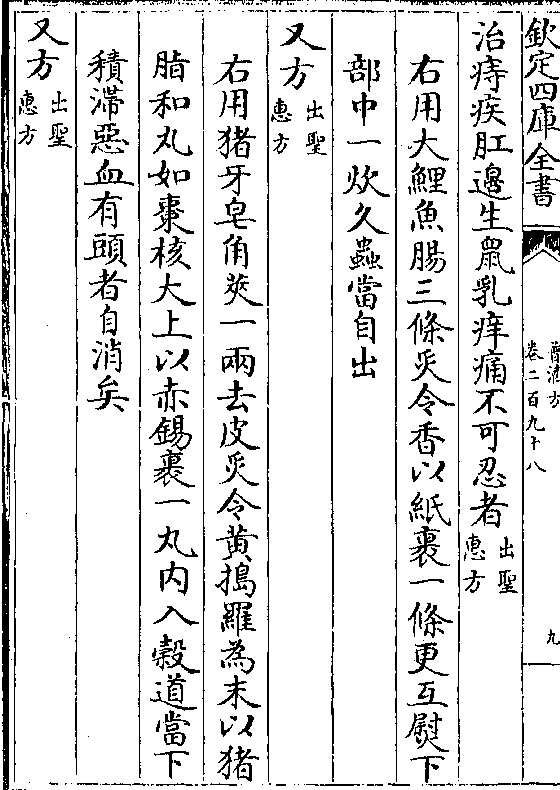 欽定四庫全書
普濟方
卷二百九十八
九
治痔疾肛邊生鼠乳痒痛不可忍者出聖惠方
右用大鯉魚腸三條炙令香以紙裹一條更互熨下
部中一炊久蟲當自出
又方出聖惠方
右用猪牙皂角莢一兩去皮炙令黄搗羅為末以猪
脂和丸如棗核大上以赤錫裹一丸内入榖道當下
積滯惡血有頭者自消矣
又方出聖惠方